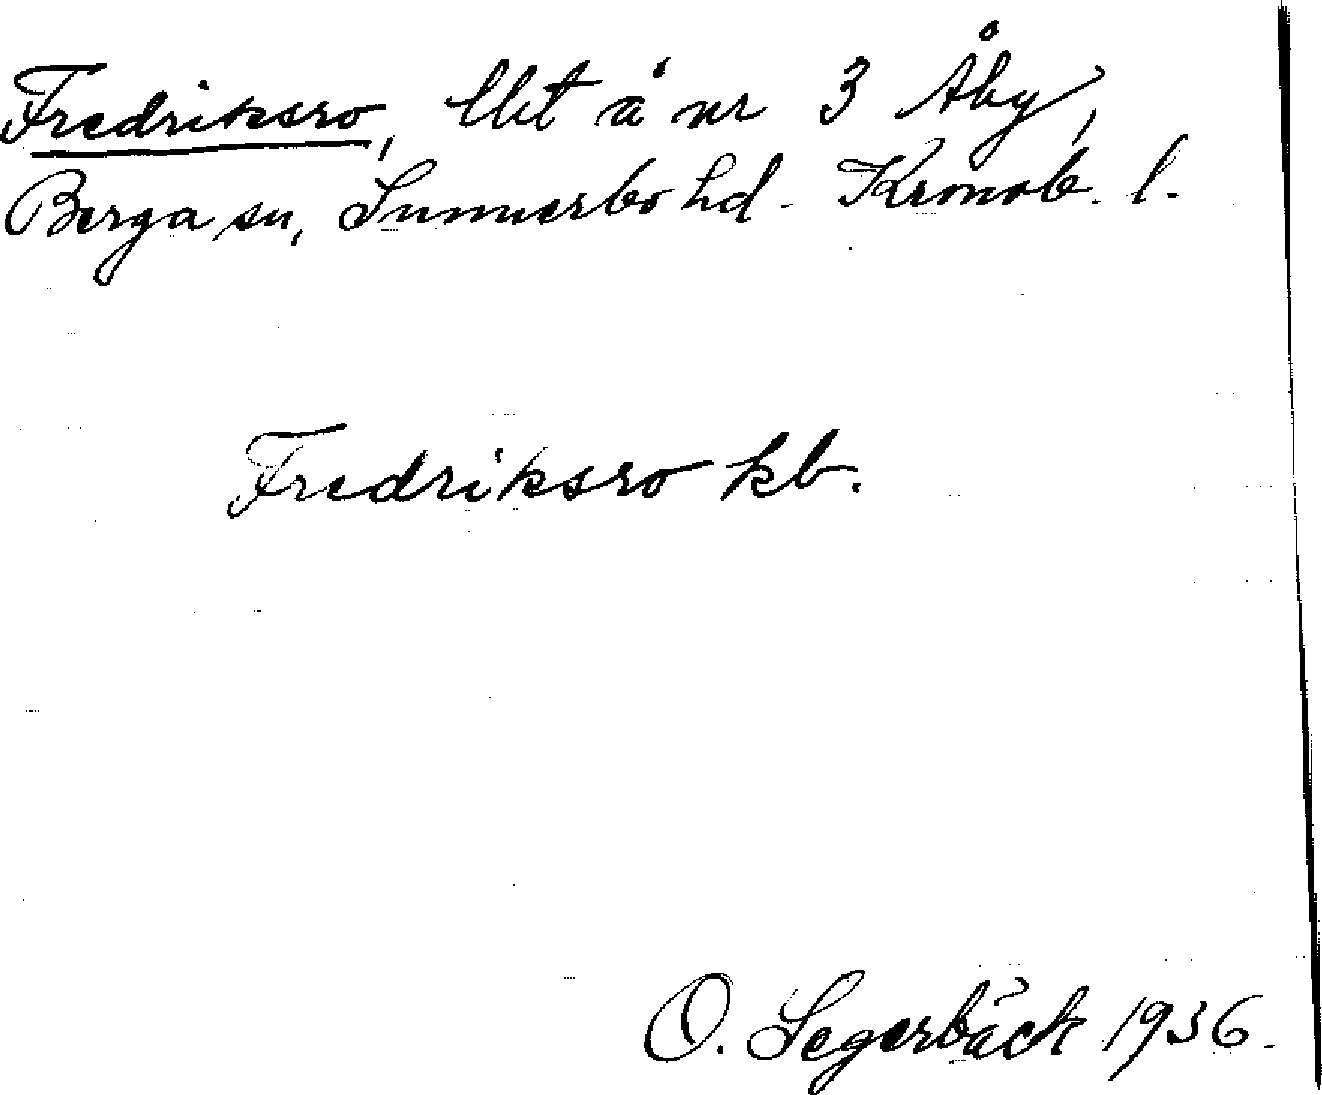 Fredriksro, lht å nr 3 Åby,
Berga sn, Sunnerbo hd. Kronob. l.
Fredriksro kb.
O. Segerbäck 1936.